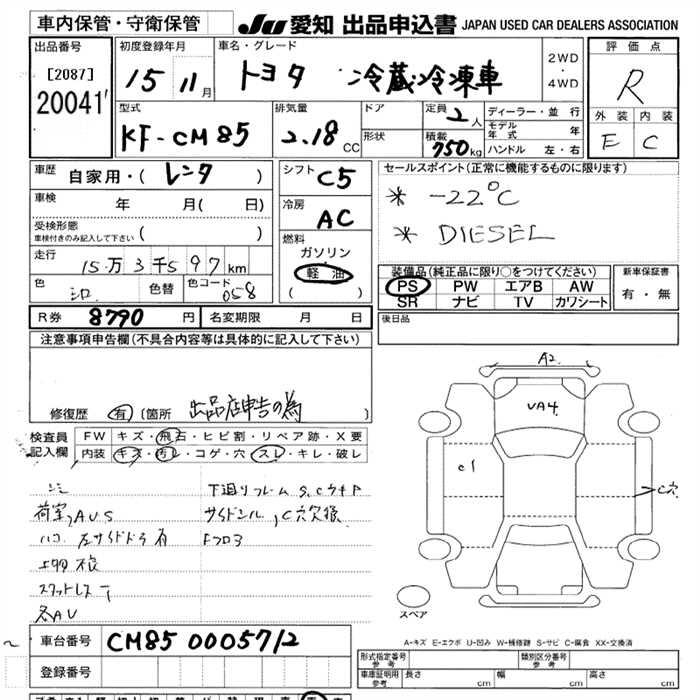 車内保管・守衛保管
JU 愛知 出品申込書 JAPAN USED CAR DEALERS ASSOCIATION
出品番号
[2087]
20041
初度登録年月
15 11月
車名・グレード
トヨタ 冷蔵冷凍車
2WD
・
4WD
評価点
R
外装 内装
E C
型式
KF-CM85
排気量
2.18 CC
ドア
形状
定員 2人
積載 750kg
ディーラー・並行
モデル年式 年
ハンドル 左・右
車歴
自家用・( レンタ )
車検 年 月( 日)
受検形態
車検付きのみ記入して下さい ( )
走行
15万3千597km
色 シロ 色替 色コード 058
シフト C5
冷房 AC
燃料
ガソリン
軽油
( )
セールスポイント(正常に機能するものに限ります)
* -22°C
* DIESEL
装備品(純正品に限り○をつけてください)
PS PW エアB AW
SR ナビ TV カワシート
新車保証書
有・無
R券 8790 円 名変期限 月 日
後日品
注意事項申告欄(不具合内容等は具体的に記入して下さい)
修復歴 有 (箇所 出品店申告の為 )
検査員記入欄
FW キズ・飛石・ヒビ割・リペア跡・X要
内装 キズ・汚レ・コゲ・穴・スレ・キレ・破レ
荷室,AUS
ハコ 左サイドドラ有
各AU
下廻りフレームS,C
A2
UA4
C1
C穴
スペア
A-キズ E-エクボ U-凹み W-補修跡 S-サビ C-腐食 XX-交換済
車台番号 CM85 0005712
登録番号
形式指定番号 参考
類別区分番号 参考
車庫証明用 参考 長さ cm 幅 cm 高さ cm